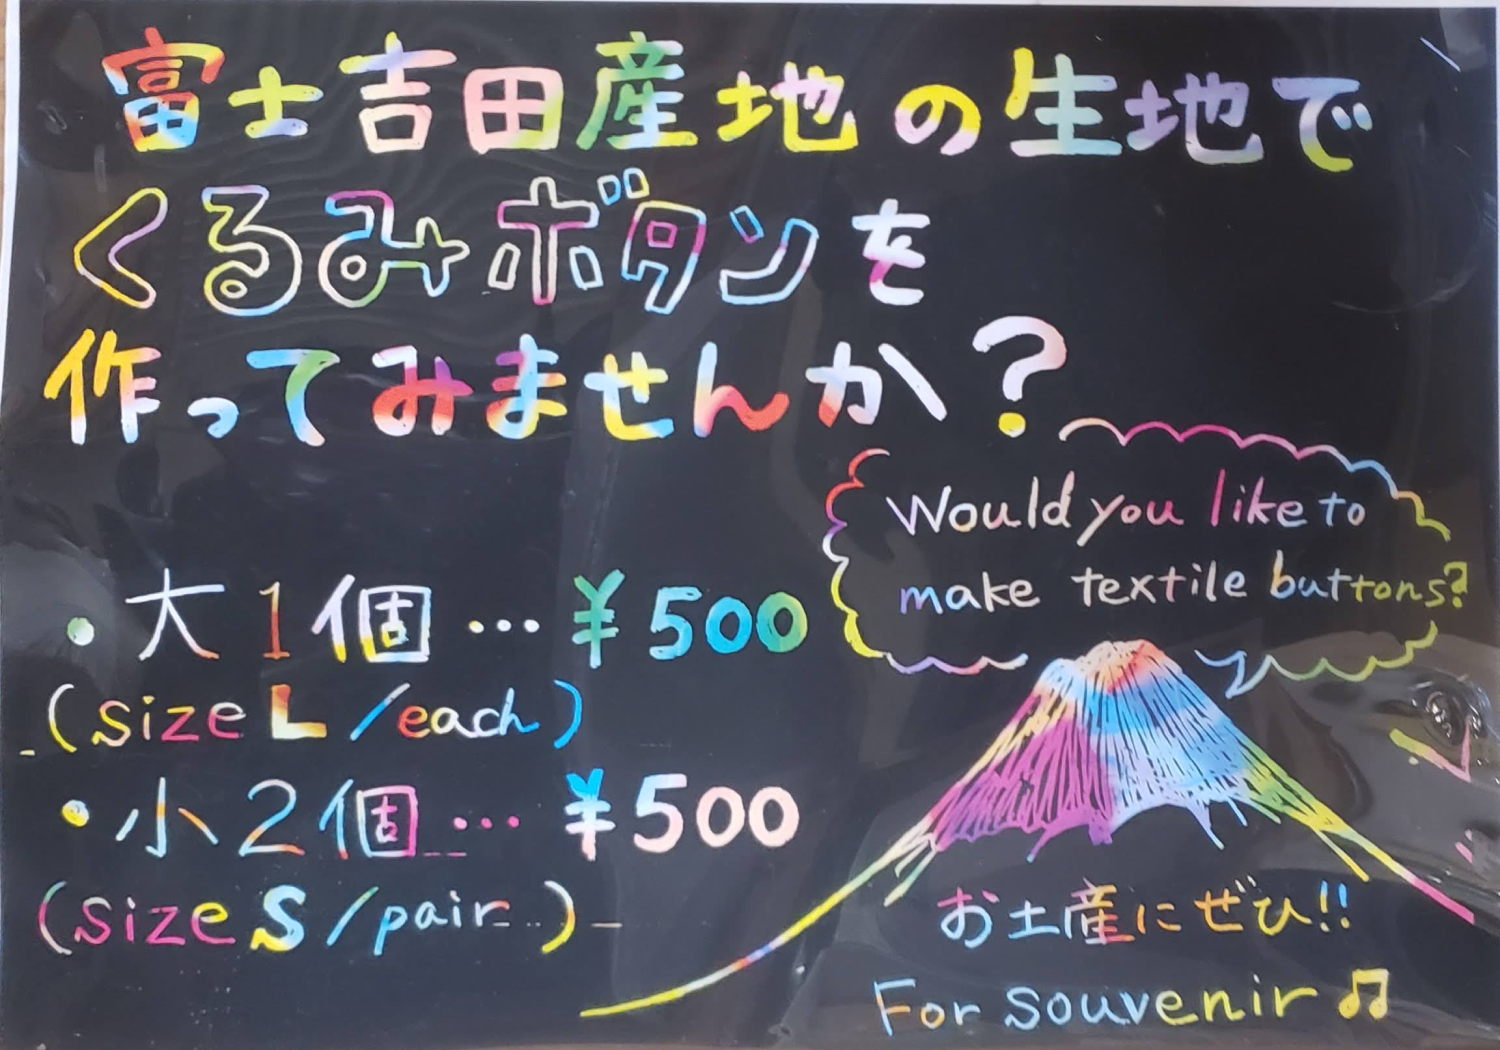 富士吉田産地の生地で
くるみボタンを
作ってみませんか?
Would you like to
make textile buttons?
・大1個…¥500
(size L/each)
・小2個…¥500
(size S/pair)
お土産にぜひ!!
For souvenir♫